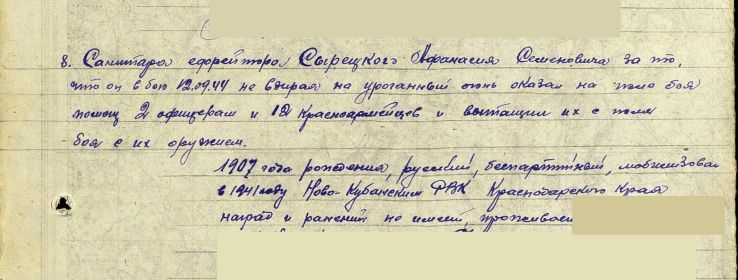 8. Санитара ефрейтора Сырецкого Афанасия Семеновича за то,
что он в бою 12.09.44 не взирая на ураганный огонь оказал на поле боя
помощ 2 офицерам и 12 красноармейцев и вытащил их с поля
боя с их оружием.
1907 года рождения, русский, беспартийный, мобилизован
в 1941 году Ново-Кубанским РВК Краснодарского Края
наград и ранений не имеет, проживает